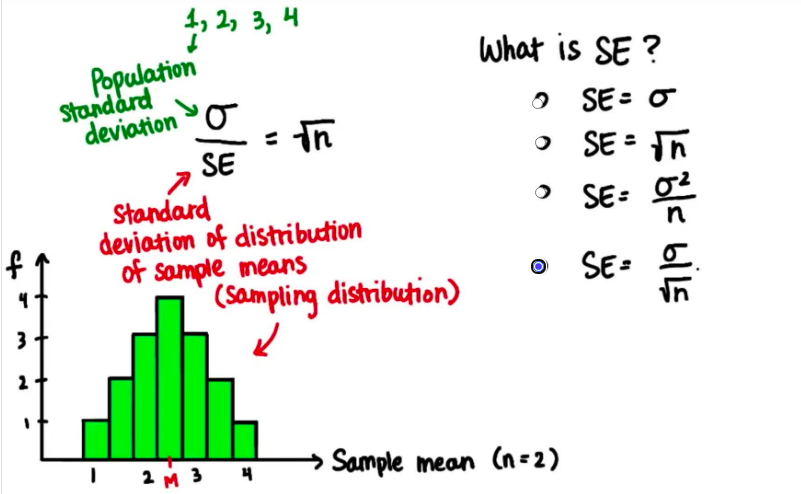 1, 2, 3, 4
Population
standard
deviation
σ
SE
= √n
Standard
deviation of distribution
of sample means
(Sampling distribution)
f
4
3
2
1
1 2 M 3 4
Sample mean (n=2)
What is SE?
SE = σ
SE = √n
SE = σ²/n
SE = σ/√n